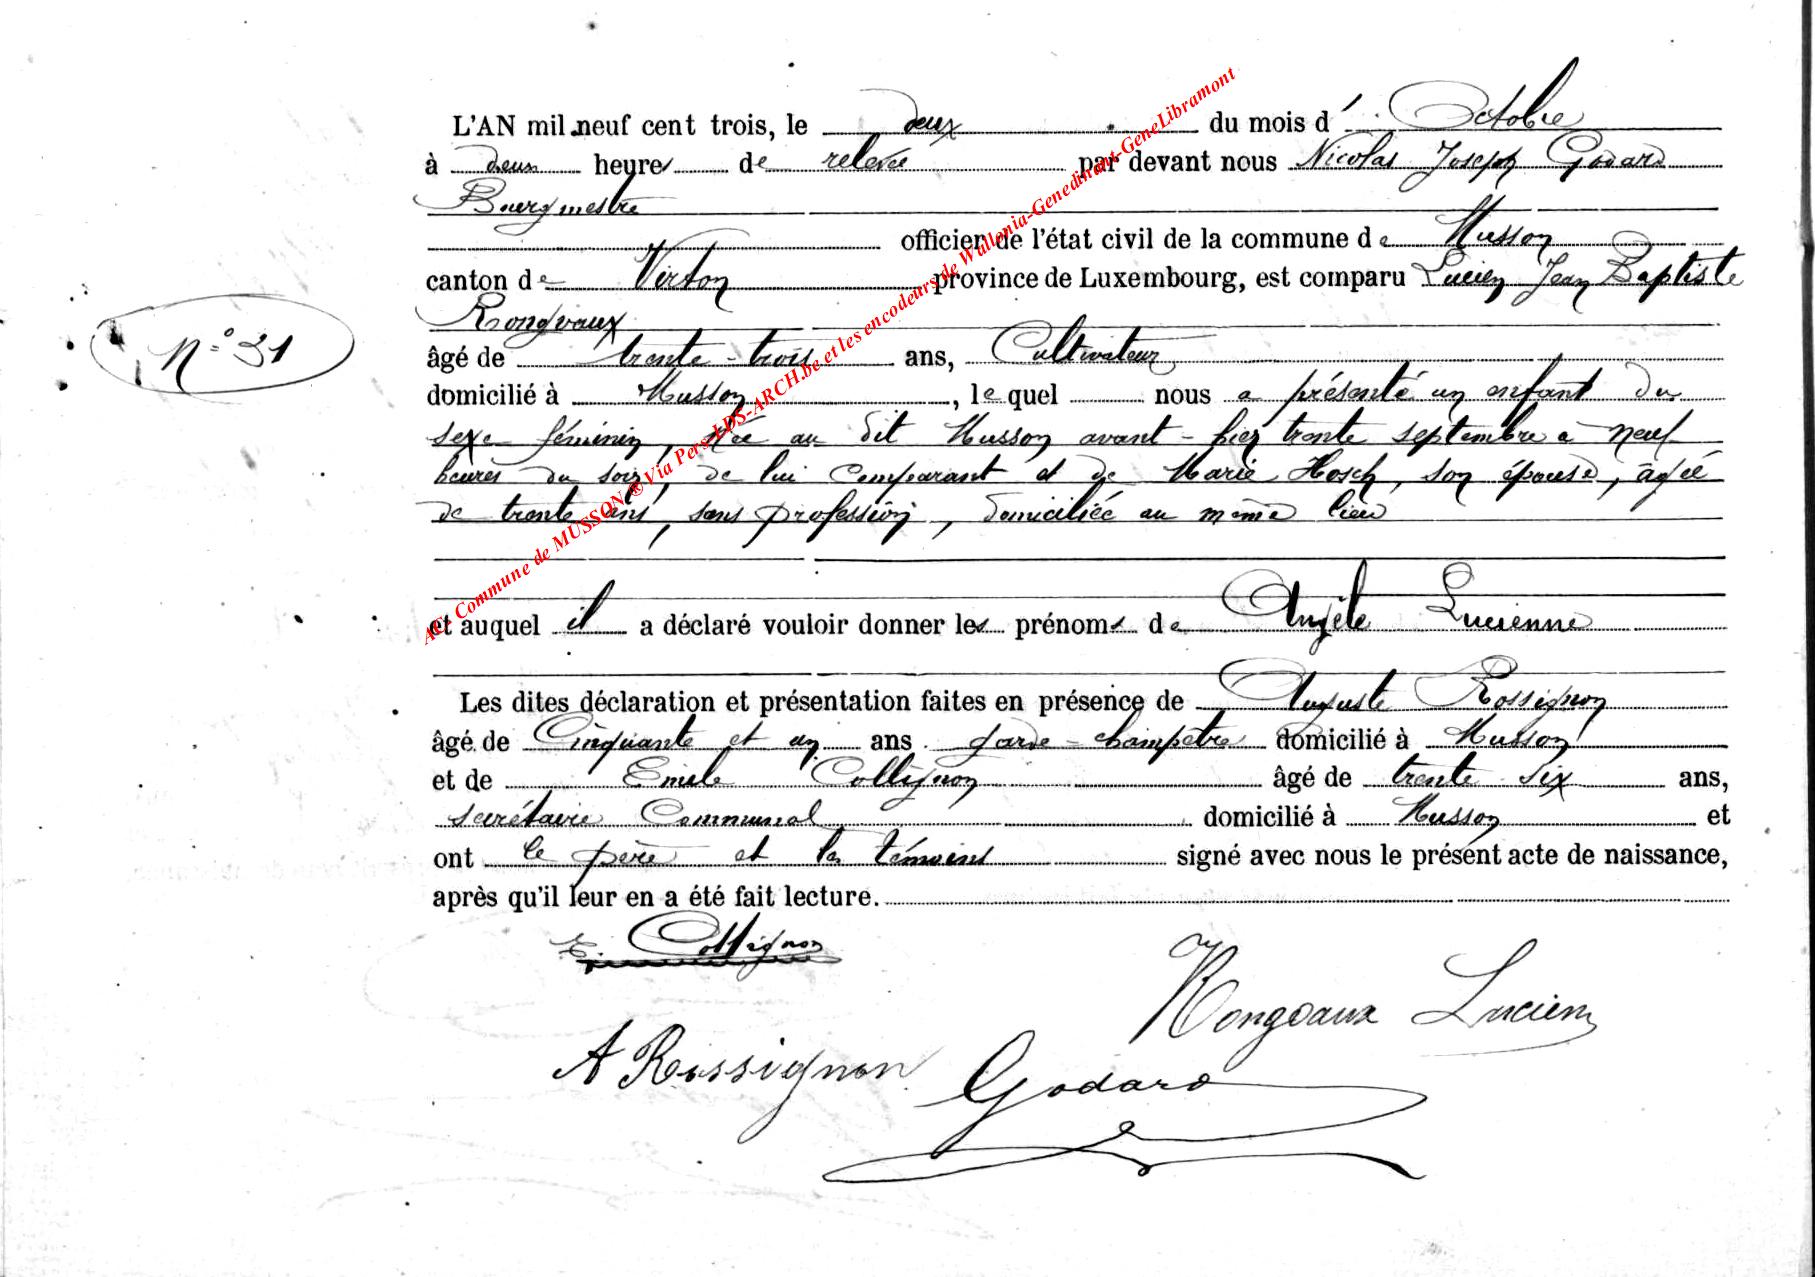 L'AN mil neuf cent trois, le deux du mois d'Octobre
à deux heures de relevée par devant nous Nicolas Joseph Godard
Bourgmestre
officier de l'état civil de la commune de Musson
canton de Virton province de Luxembourg, est comparu Lucien Jean Baptiste
Rongvaux
N° 31
âgé de trente-trois ans, Cultivateur
domicilié à Musson, le quel nous a présenté un enfant du
sexe féminin, née au dit Musson avant-hier trente septembre à neuf
heures du soir, de lui comparant et de Marie Hosch, son épouse, âgée
de trente ans, sans profession, domiciliée au même lieu
et auquel il a déclaré vouloir donner les prénoms de Angèle Lucienne
Les dites déclaration et présentation faites en présence de Auguste Rossignon
âgé de Cinquante et un ans garde-champêtre domicilié à Musson
et de Emile Collignon âgé de trente six ans,
secrétaire Communal domicilié à Musson et
ont le père et les témoins signé avec nous le présent acte de naissance,
après qu'il leur en a été fait lecture.
E. Collignon
Rongvaux Lucien
A Rossignon
Godard
AC Commune de MUSSON ® Via Pers-LDS-ARCH.be et les encodeurs de Wallonia-Genedinant-GeneLibramont